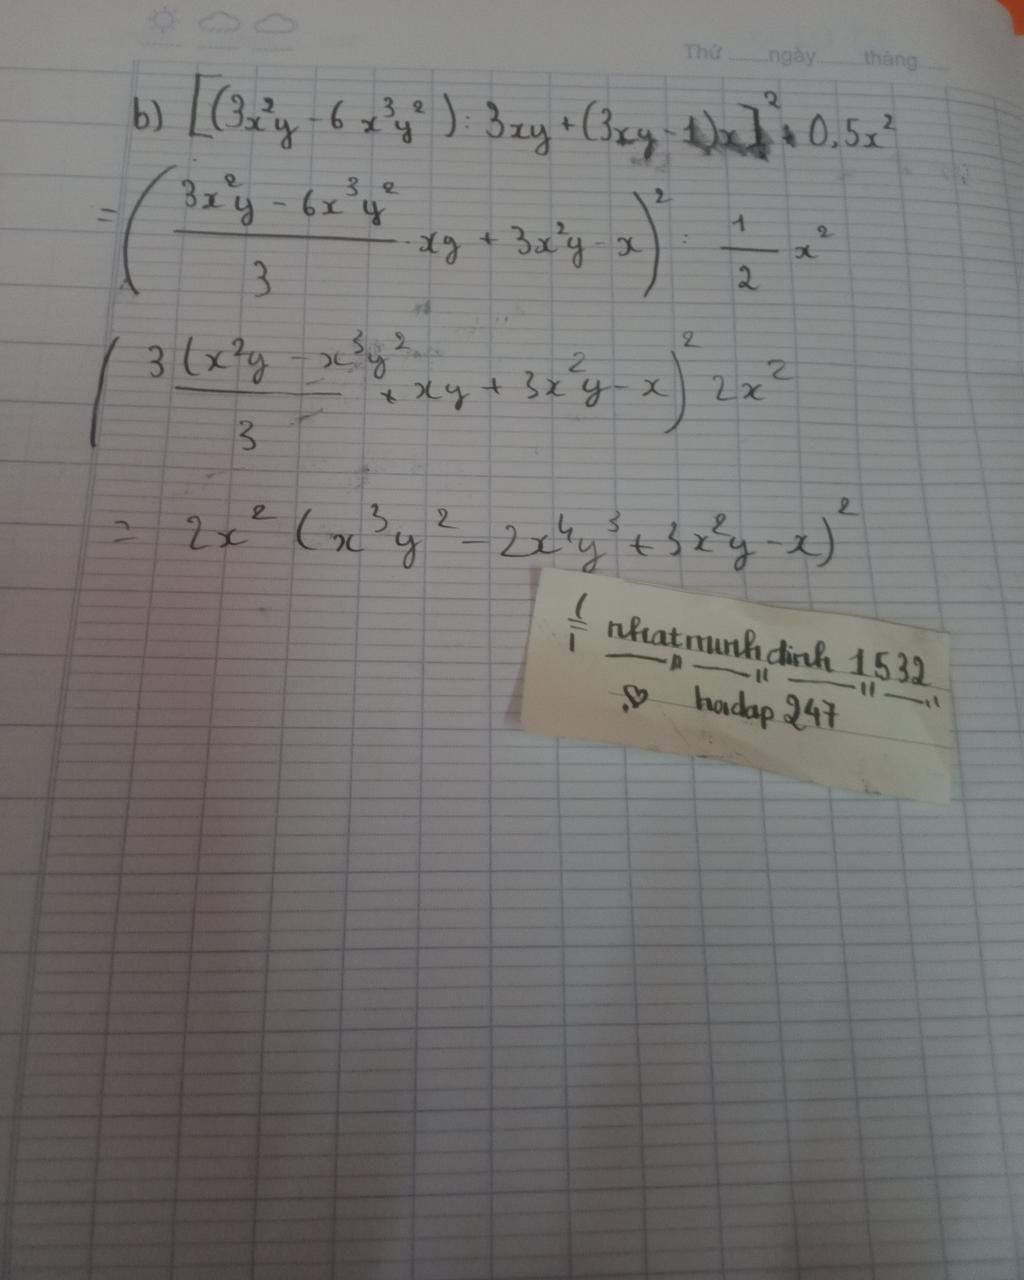 Thứ ...... ngày ...... tháng ......
b) [(3x²y - 6x³y²) : 3xy + (3xy - 1)x]² : 0,5x²
= ((3x²y - 6x³y²)/3 · xy + 3x²y - x)² : 1/2 x²
(3(x²y - x³y²)/3 * xy + 3x²y - x)² 2x²
= 2x² (x³y² - 2x⁴y³ + 3x²y - x)²
nhatminhdinh 1532
hoidap 247